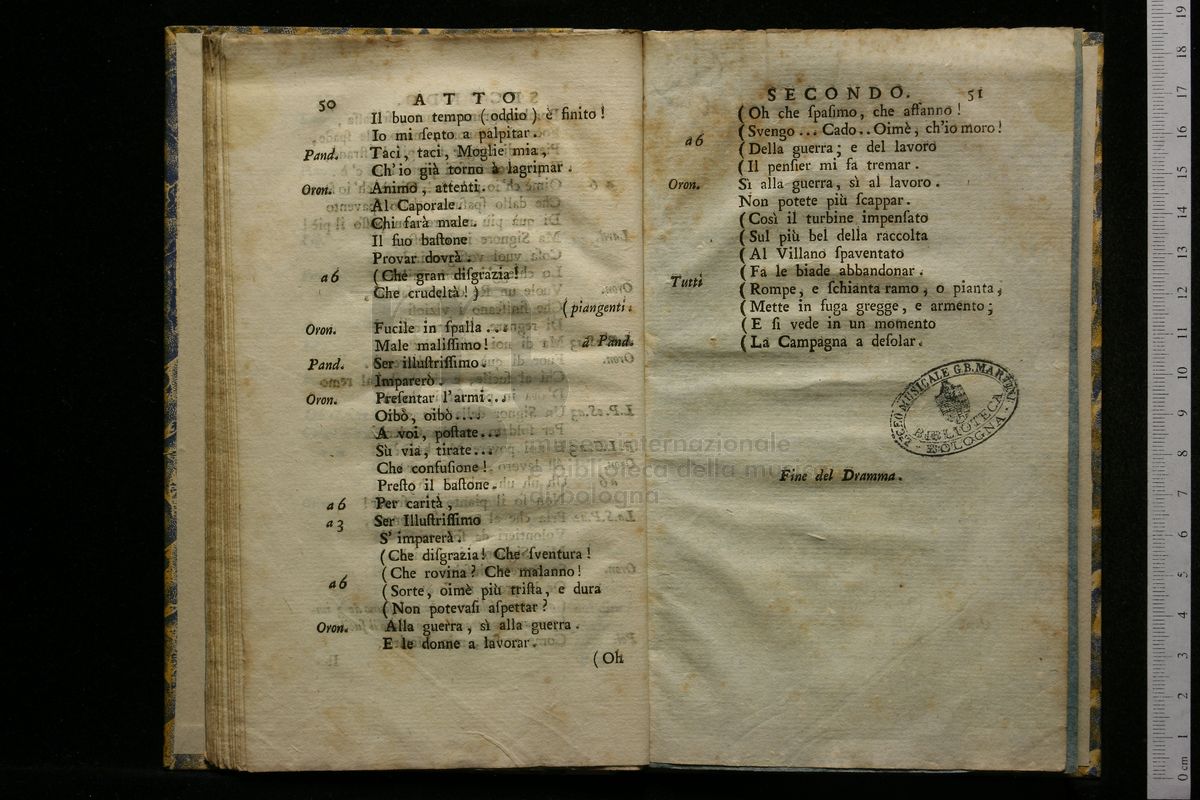 50 ATTO
Il buon tempo (oddio) è finito!
Io mi ſento a palpitar.
Pand. Taci, taci, Moglie mia,
Ch'io già torno a lagrimar.
Oron. Animo, attenti.
Al Caporale.
Chi farà male.
Il ſuo baſtone
Provar dovrà.
a 6 (Che gran diſgrazia!
Che crudeltà!)
(piangenti.
Oron. Fucile in ſpalla ...
Male maliſſimo! a Pand.
Pand. Ser illuſtriſſimo.
Imparerò.
Oron. Preſentar l'armi...
Oibò, oibò....
A voi, poſtate...
Sù via, tirate...
Che confuſione!
Preſto il baſtone.
a 6 Per carità,
a 3 Ser Illuſtriſſimo
S' imparerà.
(Che diſgrazia! Che ſventura!
(Che rovina? Che malanno!
a 6 (Sorte, oimè più triſta, e dura
(Non potevaſi aſpettar?
Oron. Alla guerra, sì alla guerra.
E le donne a lavorar.
(Oh
SECONDO. 51
(Oh che ſpaſimo, che affanno!
a 6 (Svengo... Cado.. Oimè, ch'io moro!
(Della guerra; e del lavoro
(Il penſier mi fa tremar.
Oron. Sì alla guerra, sì al lavoro.
Non potete più ſcappar.
(Così il turbine impenſato
(Sul più bel della raccolta
(Al Villano ſpaventato
Tutti (Fa le biade abbandonar.
(Rompe, e ſchianta ramo, o pianta,
(Mette in fuga gregge, e armento;
(E ſi vede in un momento
(La Campagna a deſolar.
LICEO MUSICALE G.B. MARTINI
BIBLIOTECA
BOLOGNA
Fine del Dramma.
museo internazionale
e biblioteca della musica
di bologna
0 cm 1 2 3 4 5 6 7 8 9 10 11 12 13 14 15 16 17 18 19